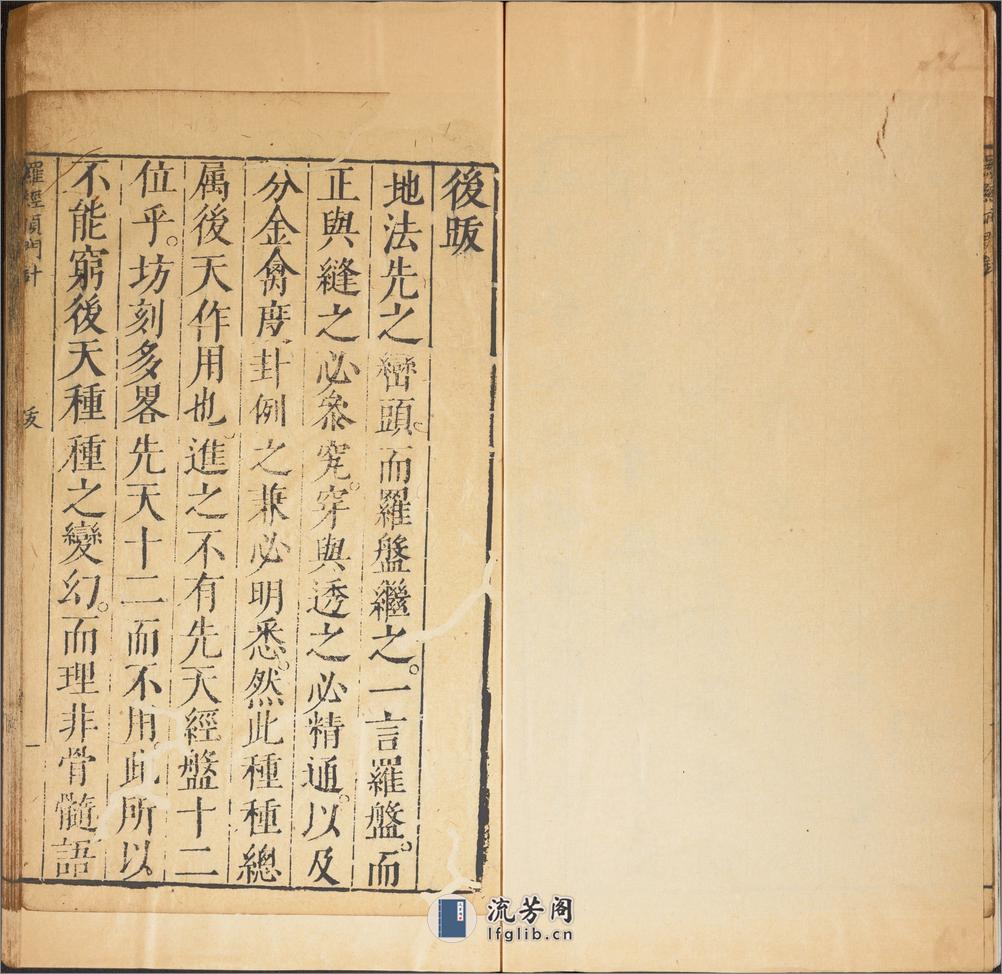 後跋
地法先之巒頭。而羅盤繼之。一言羅盤。而
正與縫之必叅究。穿與透之必精通。以及
分金禽度卦例之兼必明悉。然此種種總
属後天作用也。進之不有先天經盤十二
位乎。坊刻多畧先天十二而不用。此所以
不能窮後天種種之變幻。而理非骨髓語
羅經頂門針
一
流芳阁
lfglib.cn